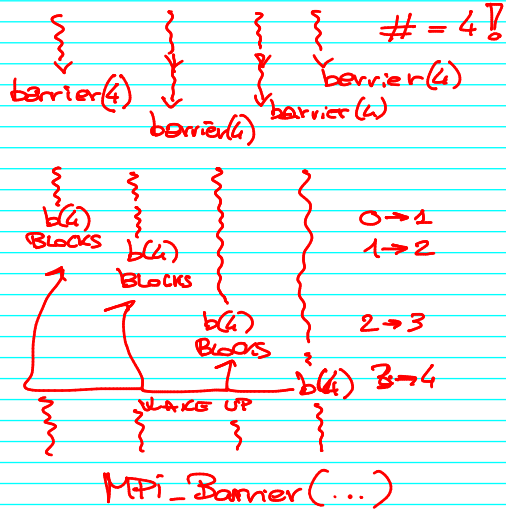 # = 4!
barrier(4) barrier(4) barrier(4) berrier(4)
b(4) 0→1
BLOCKS
b(4) 1→2
BLOCKS
b(4) 2→3
BLOCKS
b(4) 3→4
WAKE UP
MPi_Barrier(...)